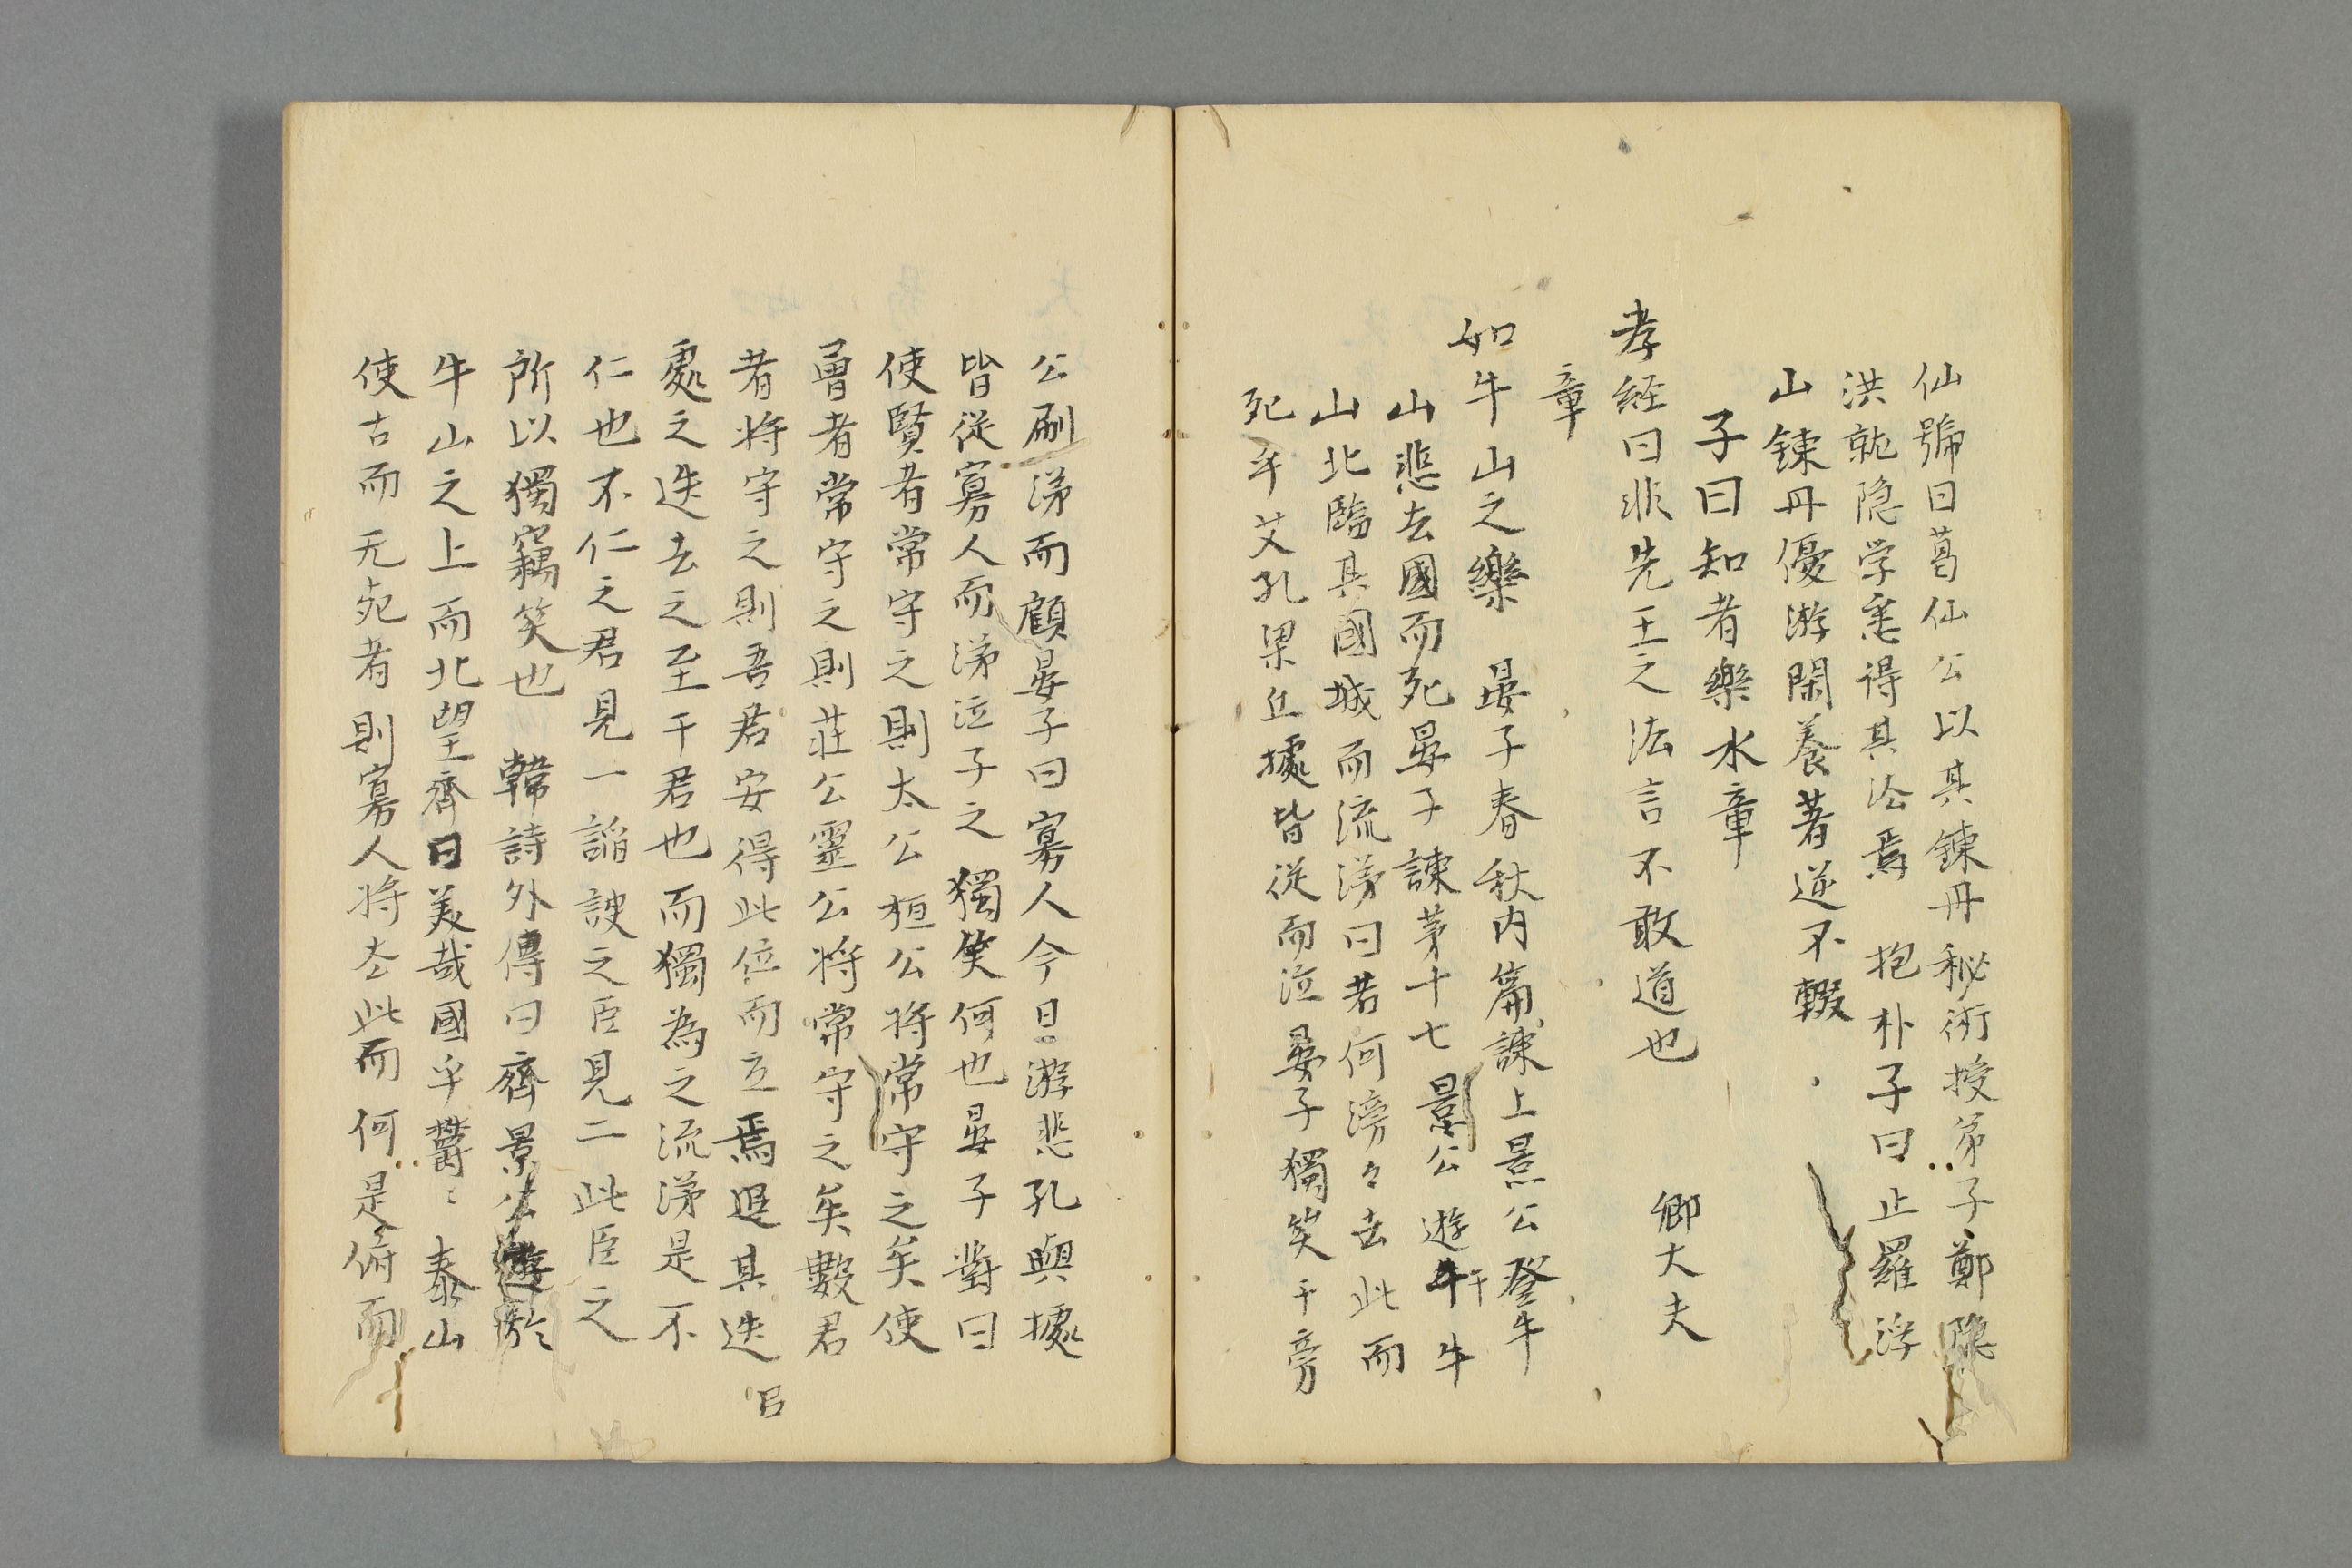 仙號曰葛仙公以其錬丹秘術授弟子鄭隠
洪就隠学悉得其法焉 抱朴子曰止羅浮
山錬丹優游閑養著逑不輟
子曰知者樂水章
孝経曰非先王之法言不敢道也 卿大夫
章
如牛山之樂 晏子春秋内篇諫上景公登牛
山悲去國而死晏子諫苐十七 景公遊牛于牛
山北臨其國城而流涕曰若何滂々去此而
死乎艾孔梁丘據皆從而泣晏子獨笑于旁
公刷涕而顧晏子曰寡人今日游悲孔與據
皆従寡人而涕泣子之獨笑何也晏子對曰
使賢者常守之則太公桓公将常守之矣使
勇者常守之則莊公靈公将常守之矣數君
者将守之則吾君安得此位而立焉㠯其迭
處之迭去之至于君也而獨為之流涕是不
仁也不仁之君見一諂諛之臣見二此臣之
所以獨竊笑也 韓詩外傳曰齊景公遊於
牛山之上而北望齊曰美哉國乎鬱〻泰山
使古而无死者則寡人将去此而何是俯而